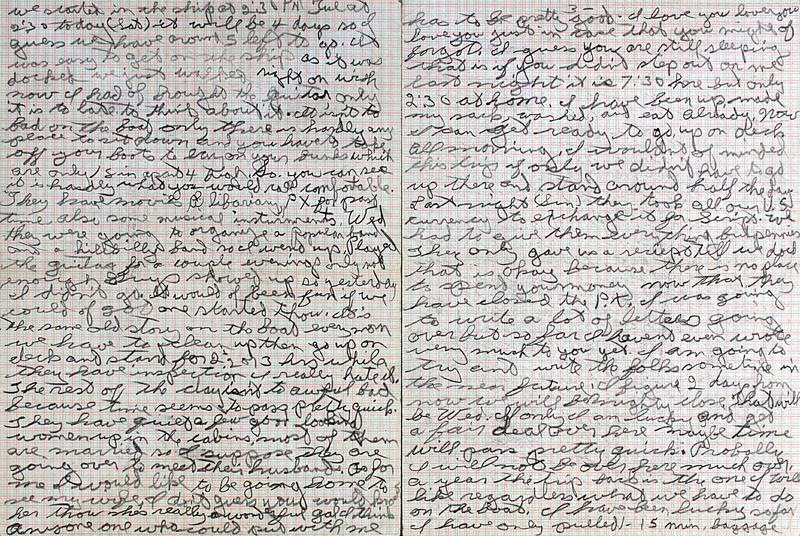 we started in the ship at 2:30 P.M. Tue at
2:30 today (Sat) it will be 4 days so I
guess we have around 5 left to go. It
was easy to get on the ship as it was
docked we just walked right on wish
now I had of brought the guitar only
it is to late to think about it. It isn't to
bad on the boat only there is hardly any
place to sit down and you have to take
off your boots to lay on your bunks which
are only 1 ft 4 so you can see
it is hardly what you would call comfortable.
They have movie & library, PX for past
time also some musical instruments. Wed
they were going to organize a band
and a hillbilly band so I went up played
the guitar for a couple evenings only not
enough showed up so yesterday
I didn't go. It would of been fun if we
would of got one started thow. It's
the same old story on the boat every morn
we have to clean up then go up on
deck and stand for 2 or 3 hrs while
they have inspection I really hate it.
The rest of the day isn't to awful bad
because time seems to pass pretty quick.
They have quite a few good looking
women up in the cabins most of them
are married so I suppose they are
going over to meet their husband. As for
me I would like to be going home to
see my wife, I don't guess you would
her thow she's really a wonderful gal I think
anyone one who could put with me
3-
has to be pretty good. I love you love you
love you just in case that you might of
forgot. I guess you are still sleeping
that is if you didn't step out on me
last night it is 7:30 here but only
2:30 at home. I have been up, made
my sack, washed, and eat already. Now
I can get ready to go up on deck
all morning, I wouldn't of minded
this trip if only we didn't have to go
up there and stand around half the day
Last night (Sun) they took all our U.S.
currency to exchange it for Script. We
had to give them everything but pennies
They only gave us a receipt till we dock
that is okay because there is no place
to spend your money now that they
have closed the PX, I was going
to write a lot of letters going
over but so far I havent even wrote
very much to you yet. I am going to
try and write the folks sometime in
the near future. I figure 2 days from
now we will be mighty close. That will
be Wed. If only I am lucky and get
a fair deal over here maybe time
will pass pretty quick. Probably
I will not be over here much over
a year the trip back is the one I will
like regardless what we have to do
on the boat. I have been lucky so far
I have only pulled 1- 15 min. baggage